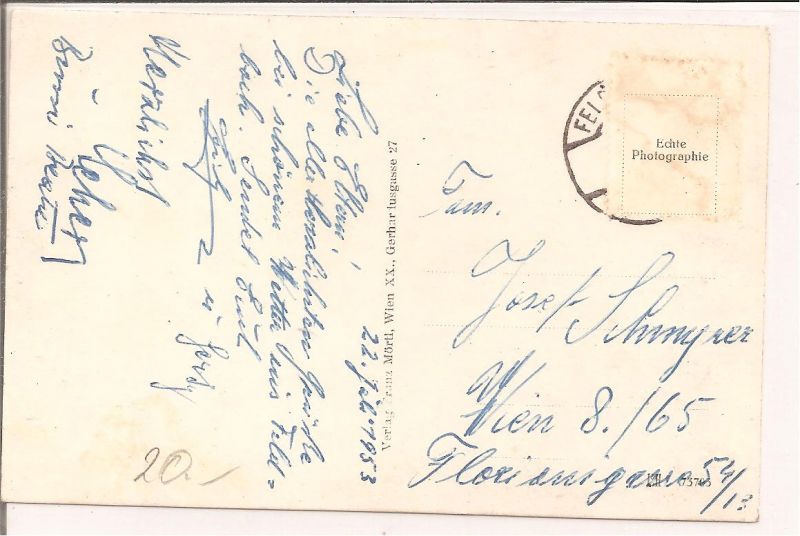 22. Juli 1953
Liebe Eltern!
Die allerherzlichsten Grüße
bei schönem Wetter aus Feld-
bach. Sendet Euch
Herzlichst
Bussi
Verlag Franz Mörtl, Wien XX., Gerhardusgasse 27
FEL
Echte
Photographie
Fam.
Josef Schmyrer
Wien 8./65
Florianigasse 54/13
20.-